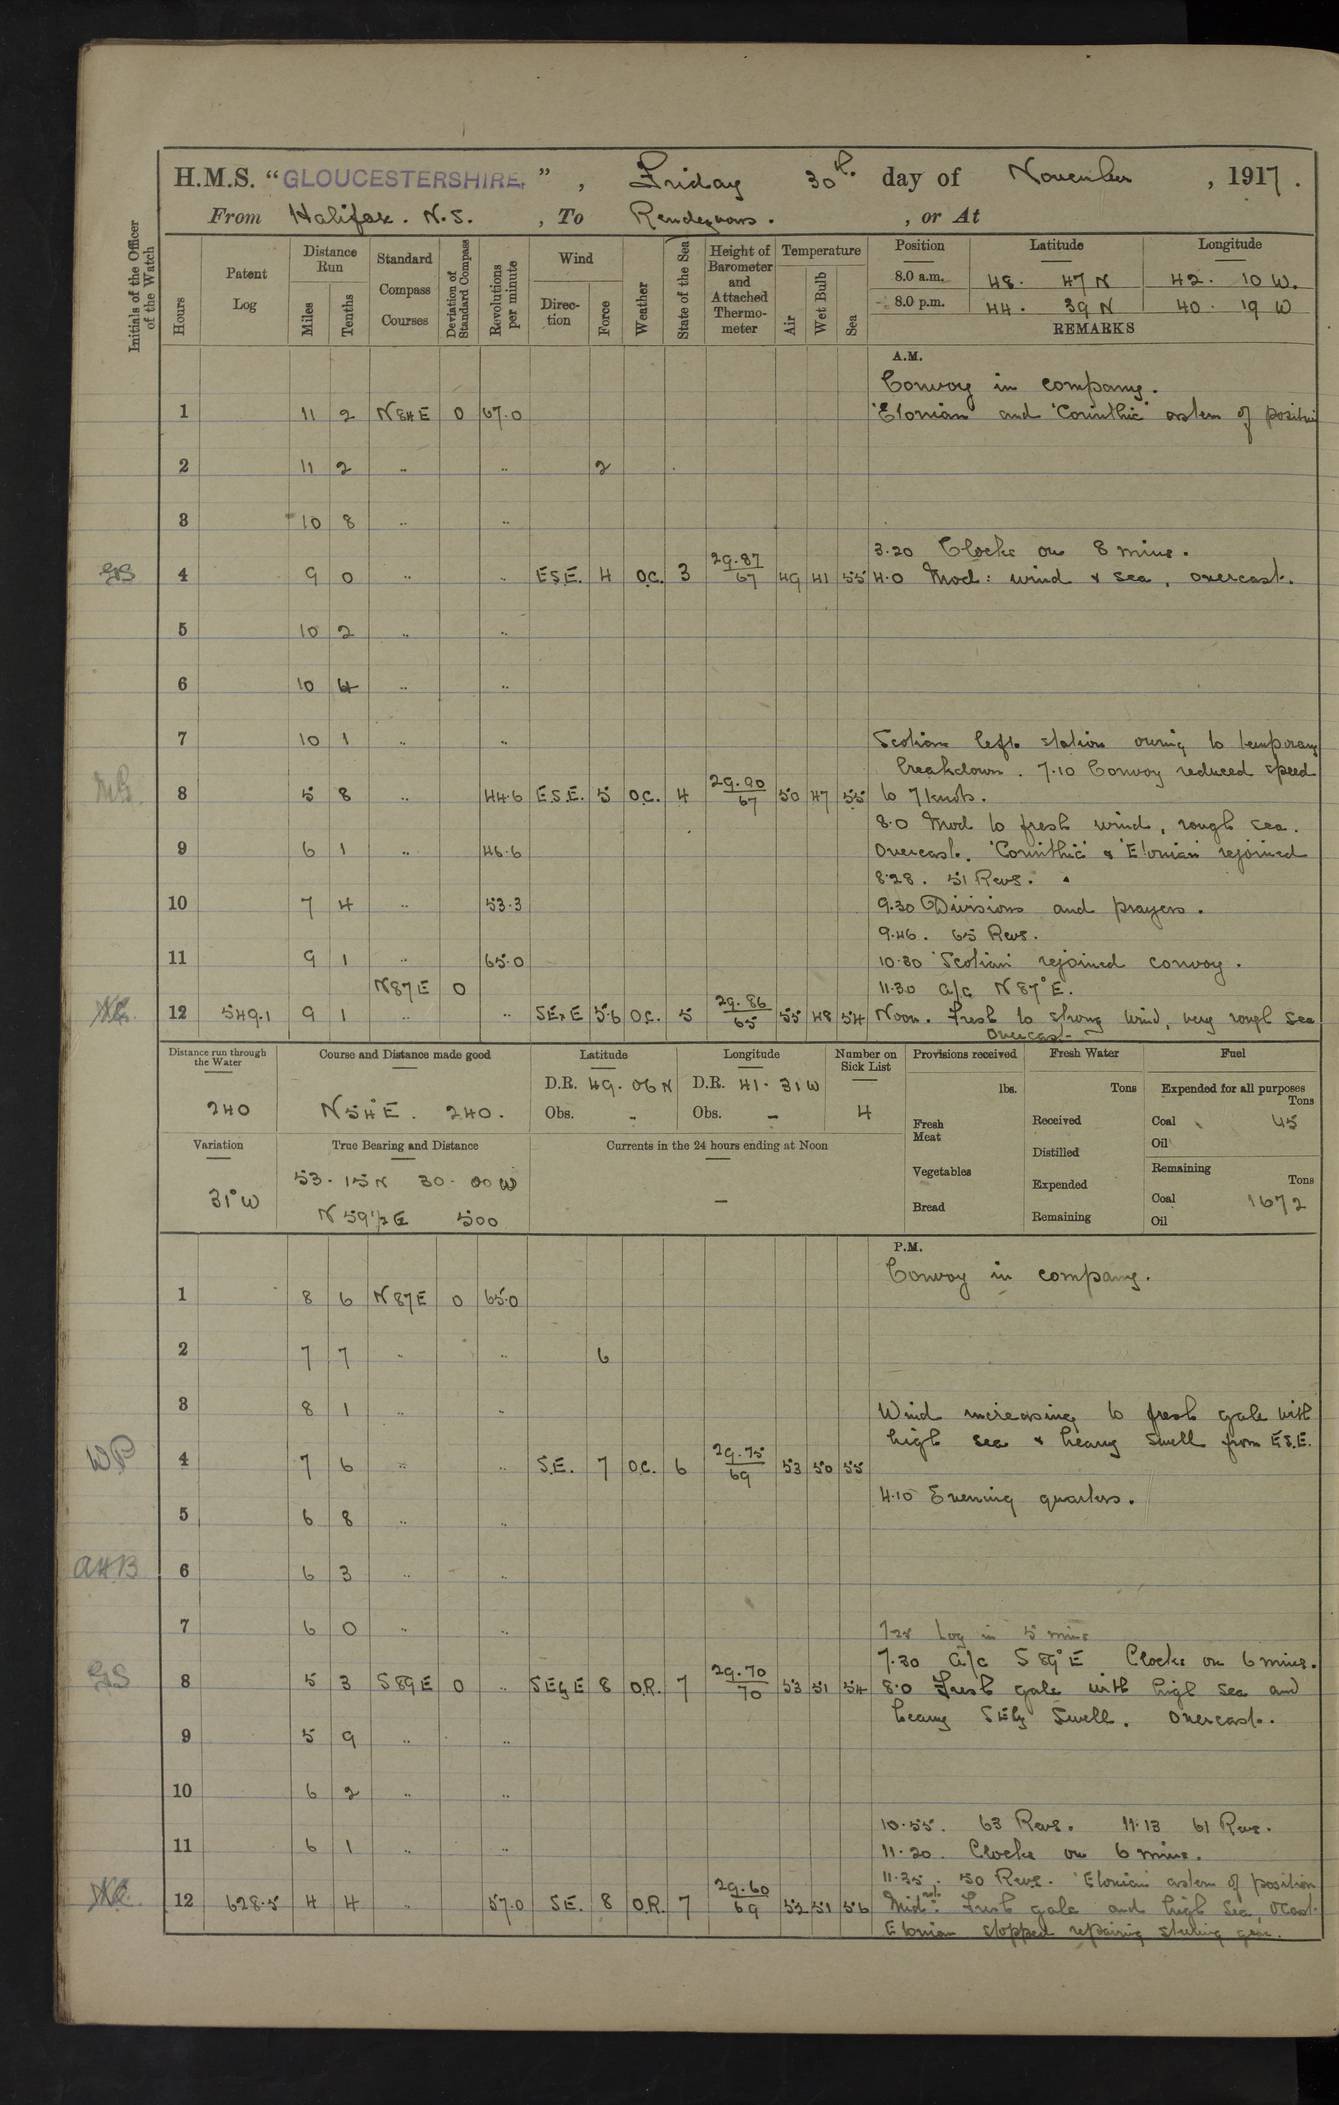 H.M.S. "GLOUCESTERSHIRE", Friday 30th day of November, 1917.
From Halifax. N.S., To Rendezvous., or At
Initials of the Officer of the Watch
Hours
Patent Log
Distance Run
Miles
Tenths
Standard Compass Courses
Deviation of Standard Compass
Revolutions per minute
Wind
Direction
Force
Weather
State of the Sea
Height of Barometer and Attached Thermometer
Temperature
Air
Wet Bulb
Sea
Position Latitude Longitude
8.0 a.m. 48. 47 N 42. 10 W.
8.0 p.m. 44. 39 N 40. 19 W
REMARKS
A.M.
Convoy in company.
1 11 2 N84E 0 67.0 'Etonian' and 'Corinthic' astern of position
2 11 2 .. .. 2
3 10 8 .. ..
3.20 Clocks on 8 mins.
GS 4 9 0 .. .. E.S.E. 4 O.C. 3 29.87/67 49 41 55 4.0 Mod: wind & sea, overcast.
5 10 2 .. ..
6 10 4 .. ..
7 10 1 .. .. Scotian left station owing to temporary
breakdown. 7.10 Convoy reduced speed
8 5 8 .. 44.6 E.S.E. 5 O.C. 4 29.90/67 50 47 55 to 7 knots.
8.0 Mod to fresh wind, rough sea.
9 6 1 .. 46.6 Overcast. 'Corinthic' & 'Etonian' rejoined
8.28. 51 Revs.
10 7 4 .. 53.3 9.30 Divisions and prayers.
9.46. 65 Revs.
11 9 1 .. 65.0 10.30 'Scotian' rejoined convoy.
N87E 0 11.30 a/c N87°E.
12 549.1 9 1 .. .. SExE 5.6 O.C. 5 29.86/65 55 48 54 Noon. Fresh to strong wind, very rough sea
Overcast
Distance run through the Water
Course and Distance made good
Latitude
Longitude
Number on Sick List
Provisions received
Fresh Water
Fuel
240
N54°E. 240.
D.R. 49. 06 N D.R. 41. 31 W
Obs. - Obs. -
4
lbs.
Fresh Meat
Vegetables
Bread
Tons
Received
Distilled
Expended
Remaining
Expended for all purposes
Tons
Coal 45
Oil
Remaining
Tons
Coal 1672
Oil
Variation
True Bearing and Distance
Currents in the 24 hours ending at Noon
31°W
53. 15 N 30. 00 W
N 59½ E 500
-
P.M.
Convoy in company.
1 8 6 N87E 0 65.0
2 7 7 .. .. 6
3 8 1 .. .. Wind increasing to fresh gale with
high sea & heavy swell from E.S.E.
WP 4 7 6 .. .. S.E. 7 O.C. 6 29.75/69 53 50 55
4.10 Evening quarters.
5 6 8 .. ..
AHB 6 6 3 .. ..
7 6 0 .. .. Log in 5 mins
7.30 a/c S89°E Clocks on 6 mins.
GS 8 5 3 S89E 0 .. SEyE 8 O.R. 7 29.70/70 53 51 54 8.0 Fresh gale with high sea and
heavy SEly Swell. Overcast.
9 5 9 .. ..
10 6 2 .. ..
10.55. 63 Revs. 11.13 61 Revs.
11 6 1 .. .. 11.20. Clocks on 6 mins.
11.35. 50 Revs. 'Etonian' astern of position
12 628.5 4 4 .. 57.0 S.E. 8 O.R. 7 29.60/69 52 51 56 Midnt: Fresh gale and high sea, O'Cast.
Etonian stopped repairing steering gear.